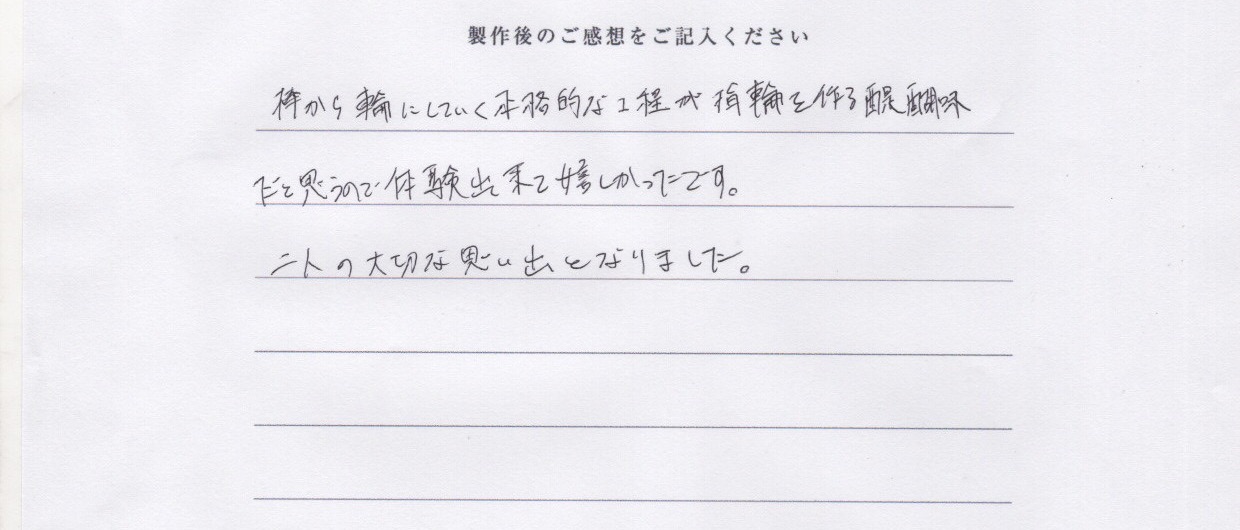 製作後のご感想をご記入ください
棒から輪にしていく本格的な工程が指輪を作る醍醐味
だと思うので体験出来て嬉しかったです。
二人の大切な思い出となりました。